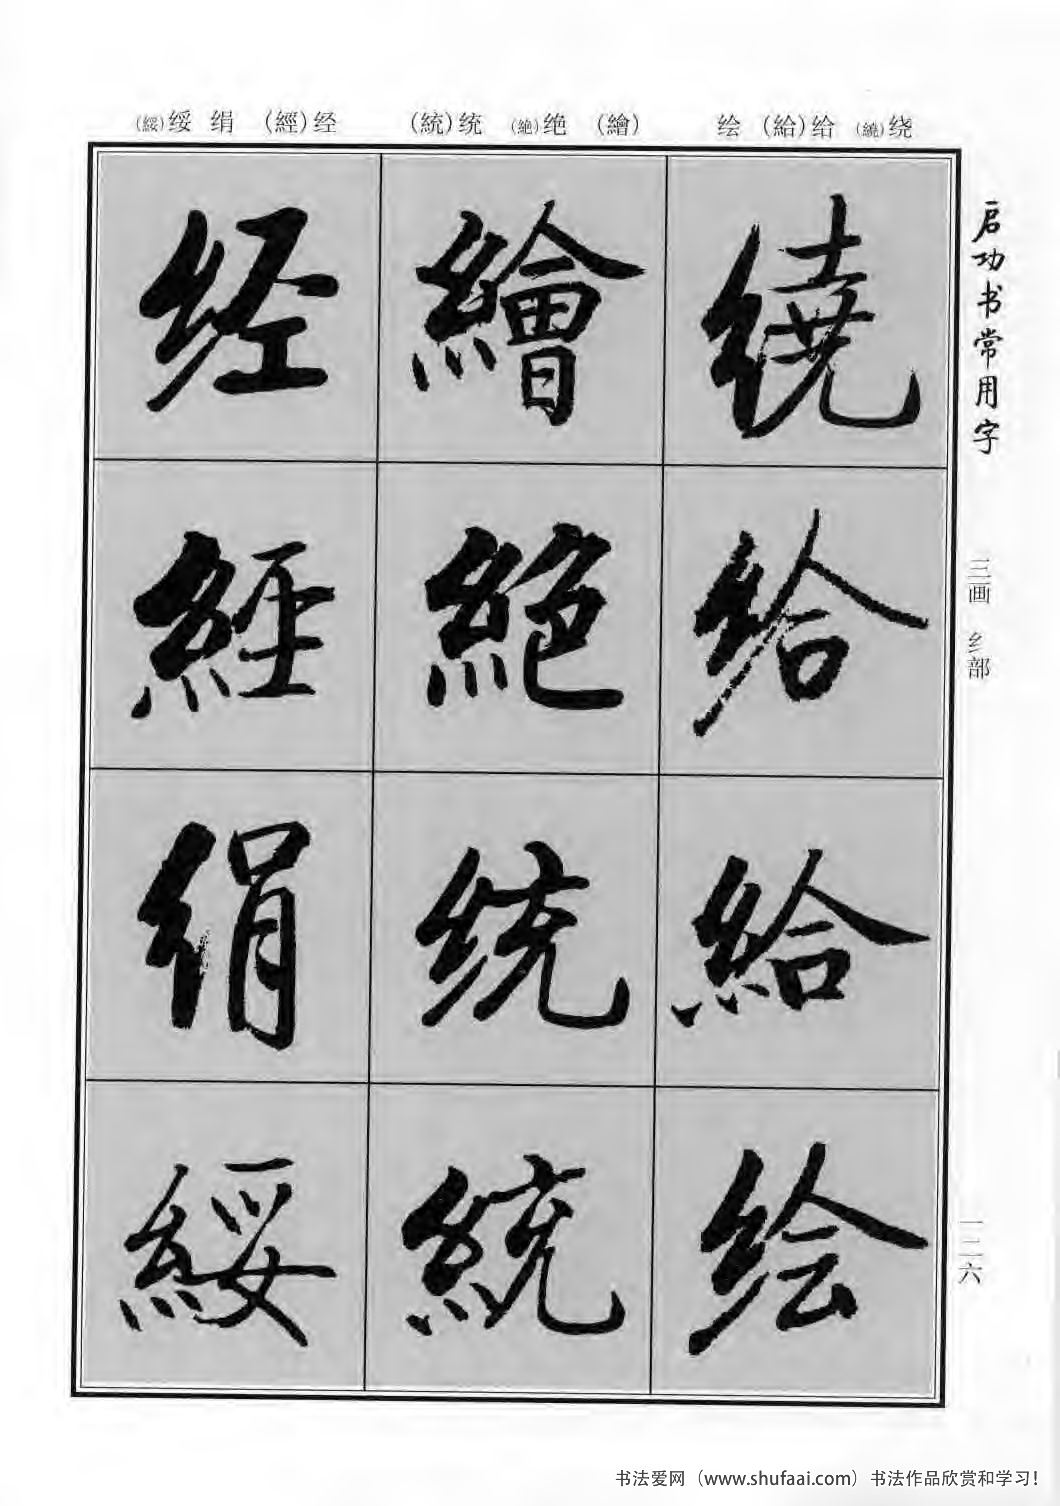 (綏)绥 绢 (經)经 (統)统 (絶)绝 (繪) 绘 (給)给 (繞)绕
启功书常用字
三画 纟部
一二六
繞
给
給
绘
繪
絶
统
統
经
經
绢
綏
书法爱网（www.shufaai.com）书法作品欣赏和学习！